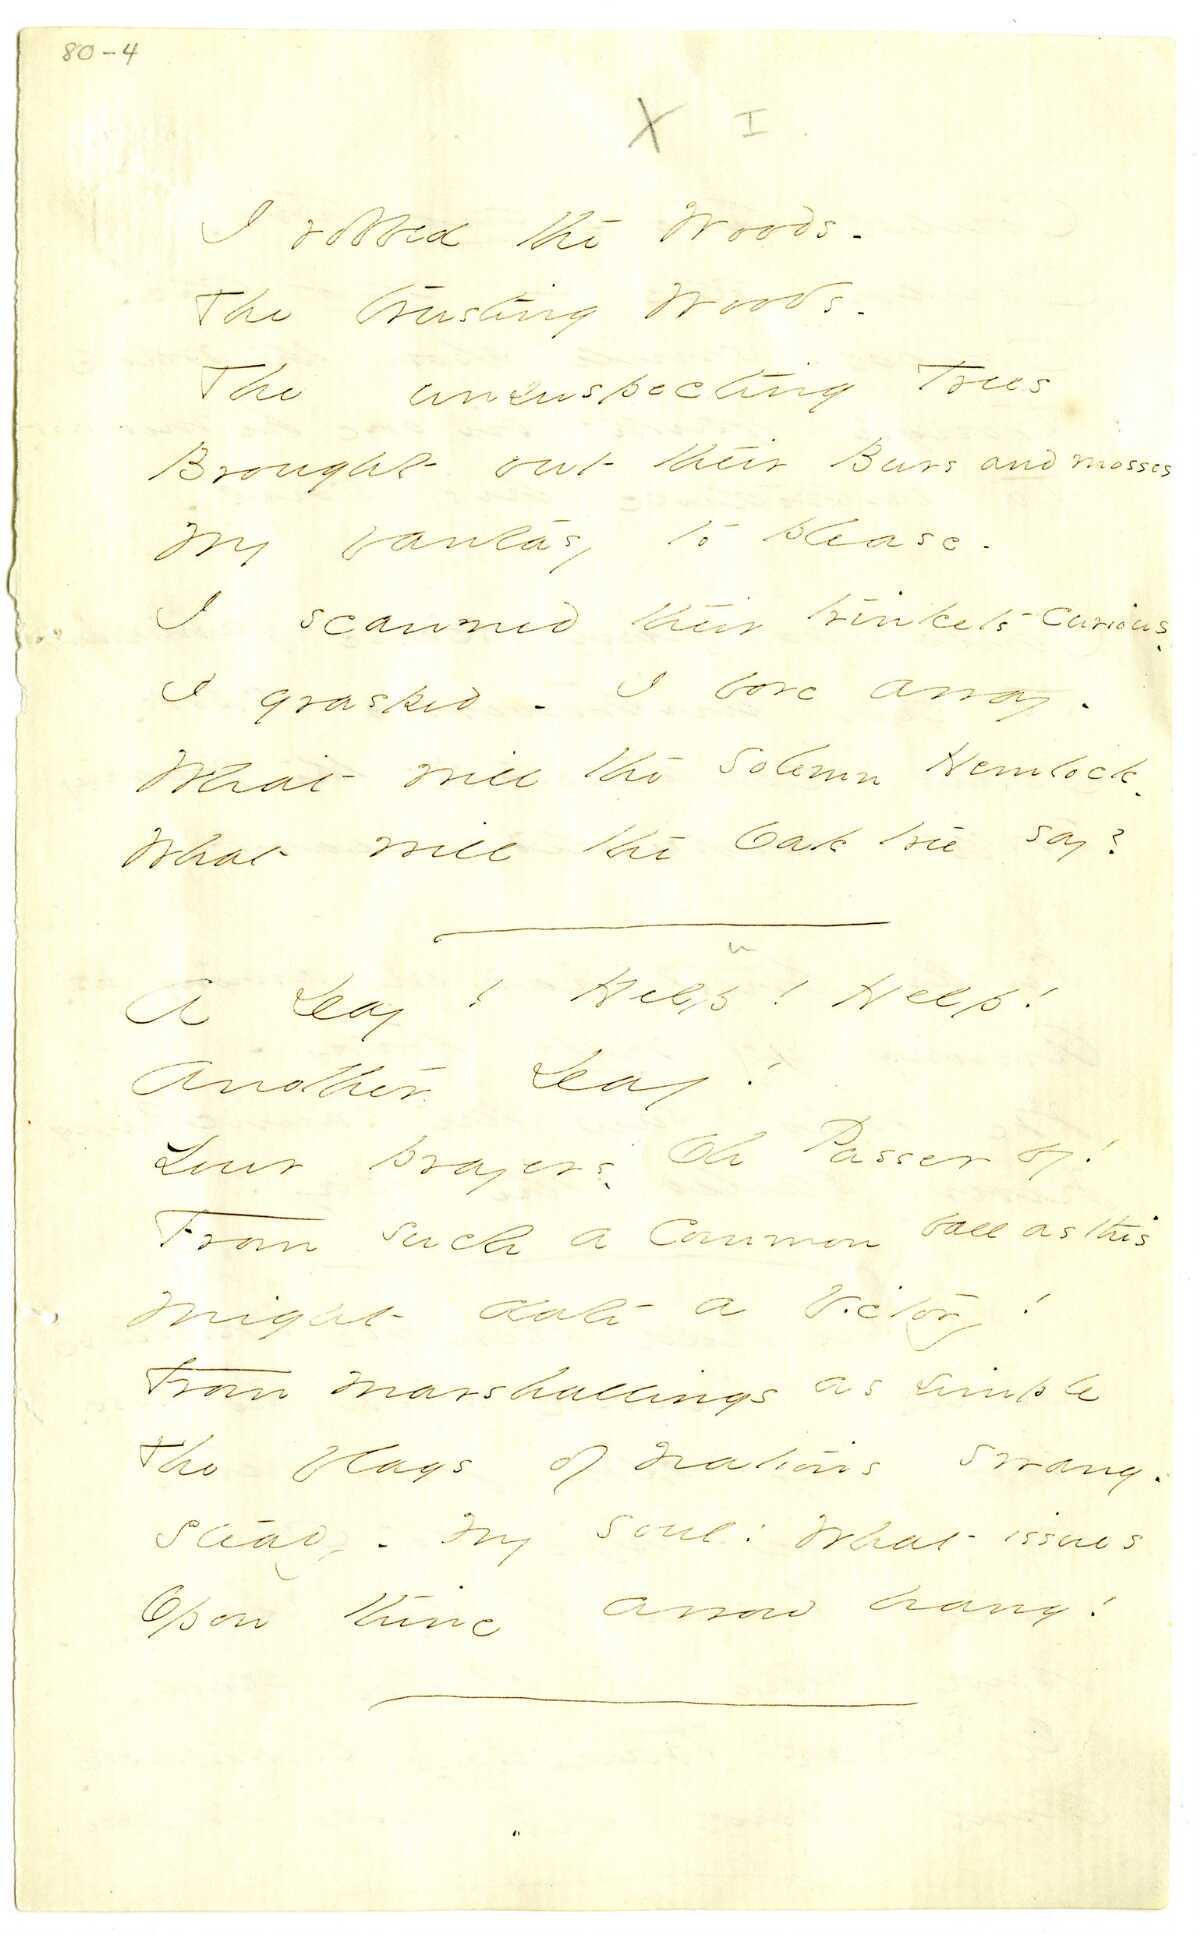 80-4
X I
I robbed the Woods -
The trusting Woods -
The unsuspecting Trees
Brought out their Burs and mosses
My fantasy to please -
I scanned their trinkets curious -
I grasped - I bore away -
What will the solemn Hemlock -
What will the Oak tree say?
A Day! Help! Help!
Another Day!
Your prayers - Oh Passer by!
From such a common ball as this
Might date a Victory!
From marshallings as simple
The flags of nations swang.
Steady - my soul! What issues
Upon thine arrow hang!